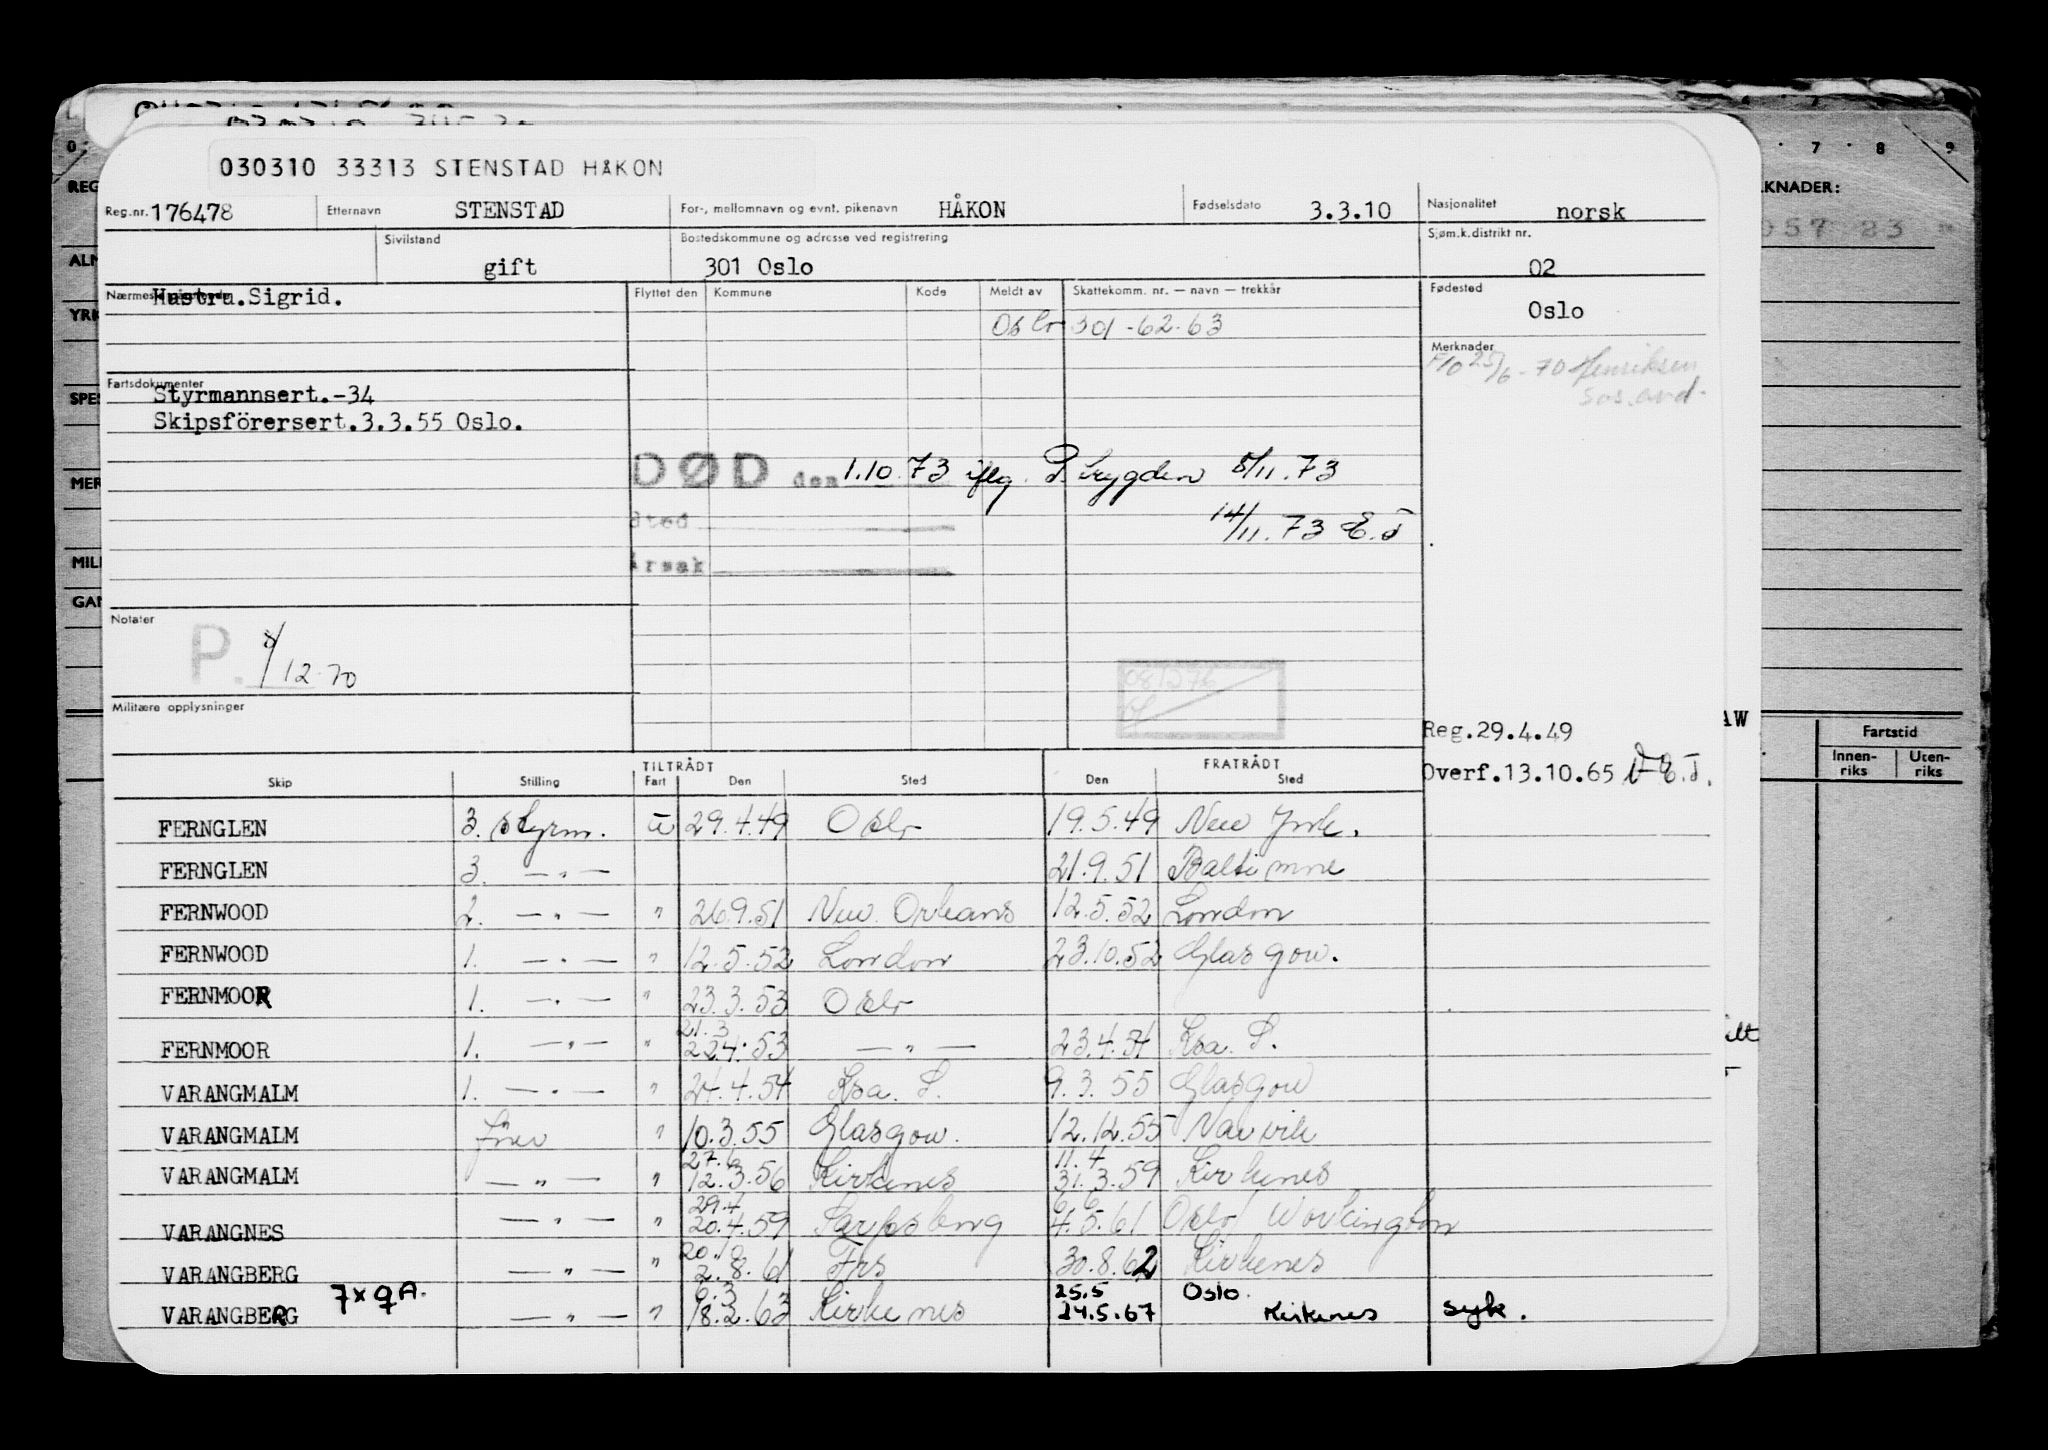 030310 33313 STENSTAD HÅKON
Reg.nr. 176478 Etternavn STENSTAD For-, mellomnavn og evnt. pikenavn HÅKON Fødselsdato 3.3.10 Nasjonalitet norsk
Sivilstand gift Bostedskommune og adresse ved registrering 301 Oslo Sjøm.k.distrikt nr. 02
Hustru. Sigrid. Flyttet den Kommune Kode Meldt av Skattekomm. nr. — navn — trekkår Fødested Oslo
Oslo 301 -62-63
Merknader
25/6-70 Henriksen
Sos. avd.
Fartsdokumenter
Styrmannsert.-34
Skipsförersert.3.3.55 Oslo.
DØD den 1.10.73 iflg. P.trygden 5/11.73
Sted 14/11.73 E.T
Årsak
Notater
P. /12-70
Militære opplysninger
Reg.29.4.49
Overf.13.10.65 E.T.
TILTRÅDT FRATRÅDT
Skip Stilling Fart Den Sted Den Sted
FERNGLEN 3. styrm. u 29.4.49 Oslo 19.5.49 New York.
FERNGLEN 3. —"— 21.9.51 Baltimore
FERNWOOD 2. —"— " 26.9.51 New Orleans 12.5.52 London
FERNWOOD 1. —"— " 12.5.52 London 23.10.52 Glasgow.
FERNMOOR 1. —"— " 23.3.53 Oslo
21.3
FERNMOOR 1. —"— " 22.4.53 —"— 23.4.54 Kra. S.
VARANGMALM 1. —"— " 24.4.54 Kra. S. 9.3.55 Glasgow
VARANGMALM fører " 10.3.55 Glasgow. 12.12.55 Narvik
27.6 11.4
VARANGMALM —"— " 12.3.56 Kirkenes 31.3.59 Kirkenes
29.4 6.6
VARANGNES —"— " 20.4.59 Sarpsborg 4.5.61 Oslo/Workington
20.10
VARANGBERG —"— " 2.8.61 Frs 30.8.62 Kirkenes
7x9A. 6.3 25.5 Oslo.
VARANGBERG —"— " 18.2.63 Kirkenes 24.5.67 Kirkenes syk.
7 8 9
KNADER:
05783
AW
Fartstid
Innen-riks Uten-riks
REG
YRK
SPES
MER
MILI